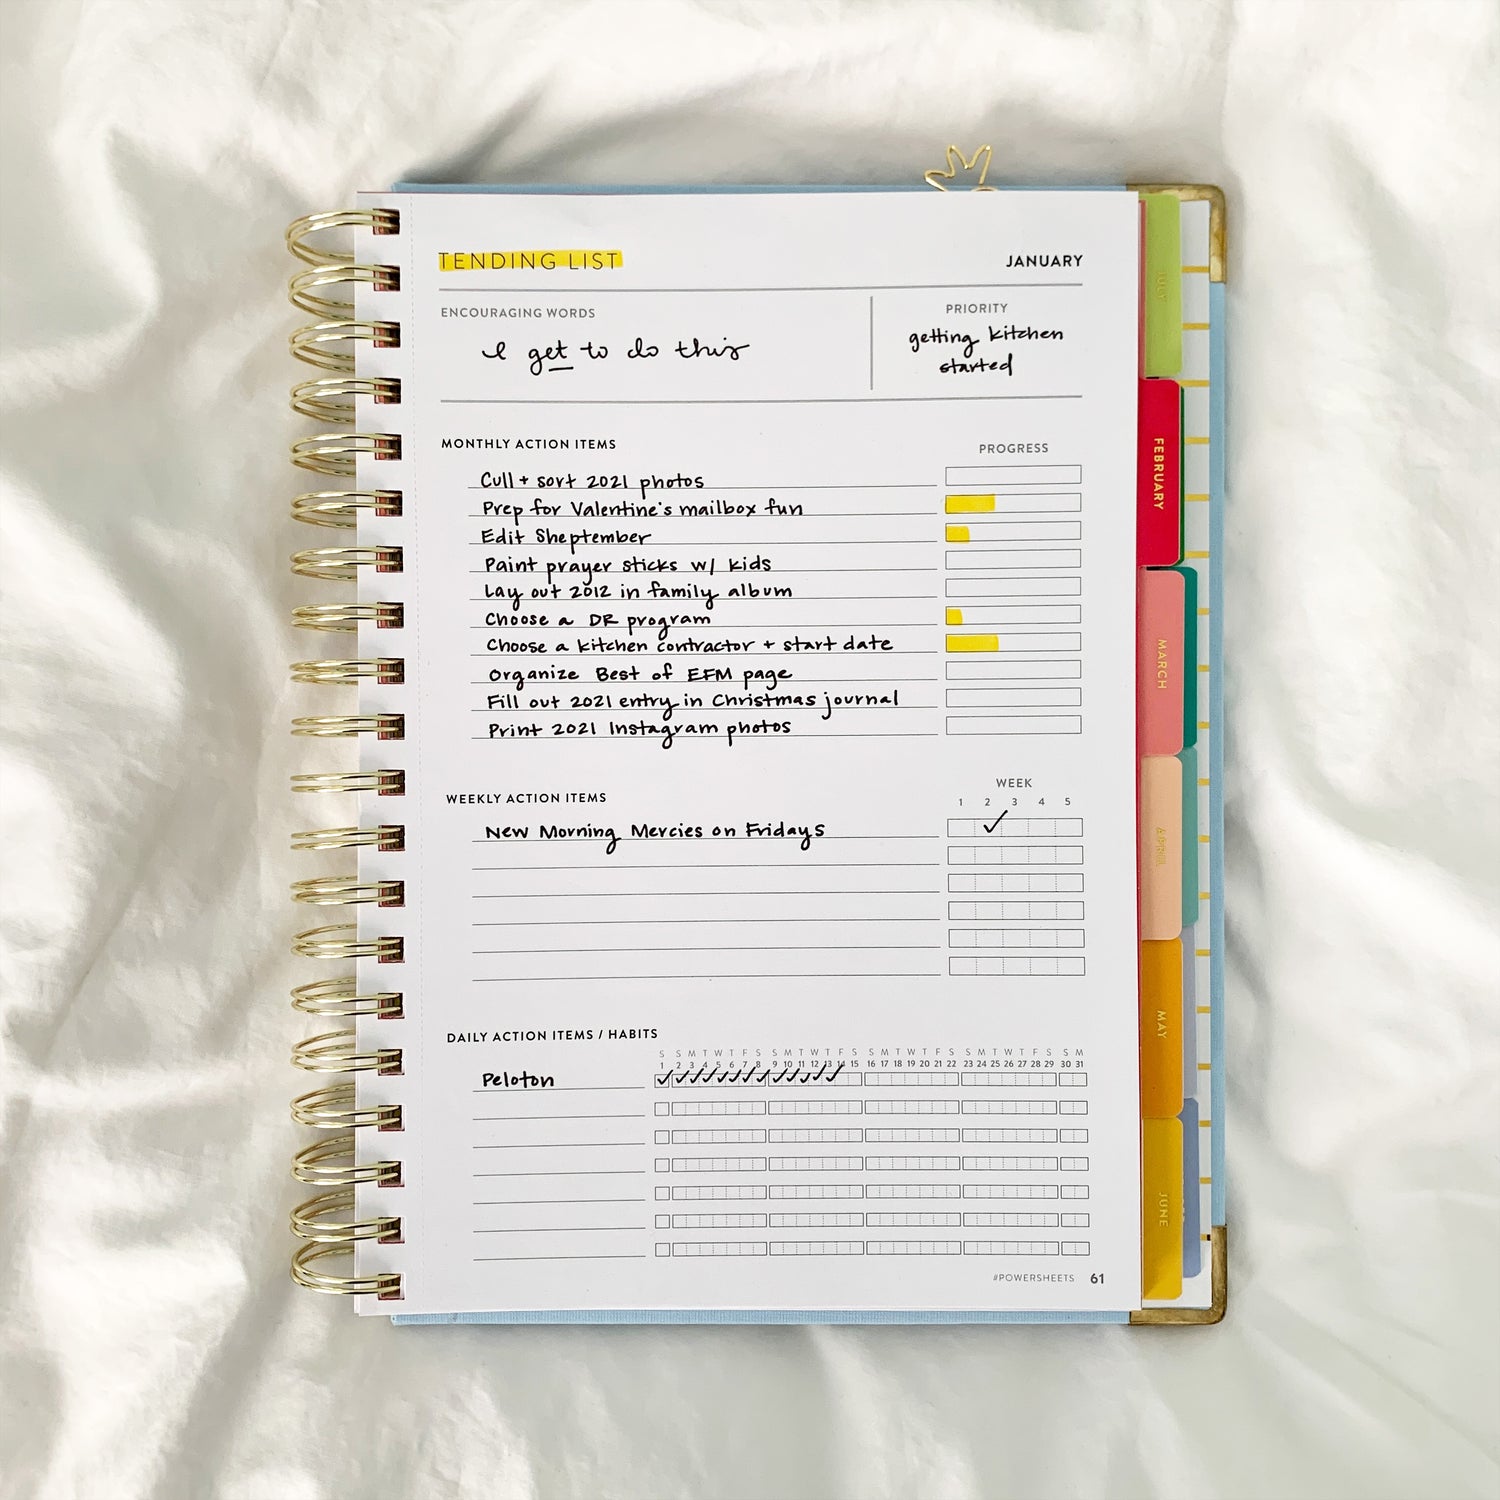 TENDING LIST
JANUARY
ENCOURAGING WORDS
I get to do this
PRIORITY
getting kitchen
started
MONTHLY ACTION ITEMS
PROGRESS
Cull + sort 2021 photos
Prep for Valentine's mailbox fun
Edit Sheptember
Paint prayer sticks w/ kids
Lay out 2012 in family album
Choose a DR program
Choose a kitchen contractor + start date
Organize Best of EFM page
Fill out 2021 entry in Christmas journal
Print 2021 Instagram photos
WEEKLY ACTION ITEMS
WEEK
1 2 3 4 5
New Morning Mercies on Fridays
DAILY ACTION ITEMS / HABITS
S S M T W T F S S M T W T F S S M T W T F S S M T W T F S S M
1 2 3 4 5 6 7 8 9 10 11 12 13 14 15 16 17 18 19 20 21 22 23 24 25 26 27 28 29 30 31
Peloton
#POWERSHEETS 61
JULY
FEBRUARY
MARCH
APRIL
MAY
JUNE